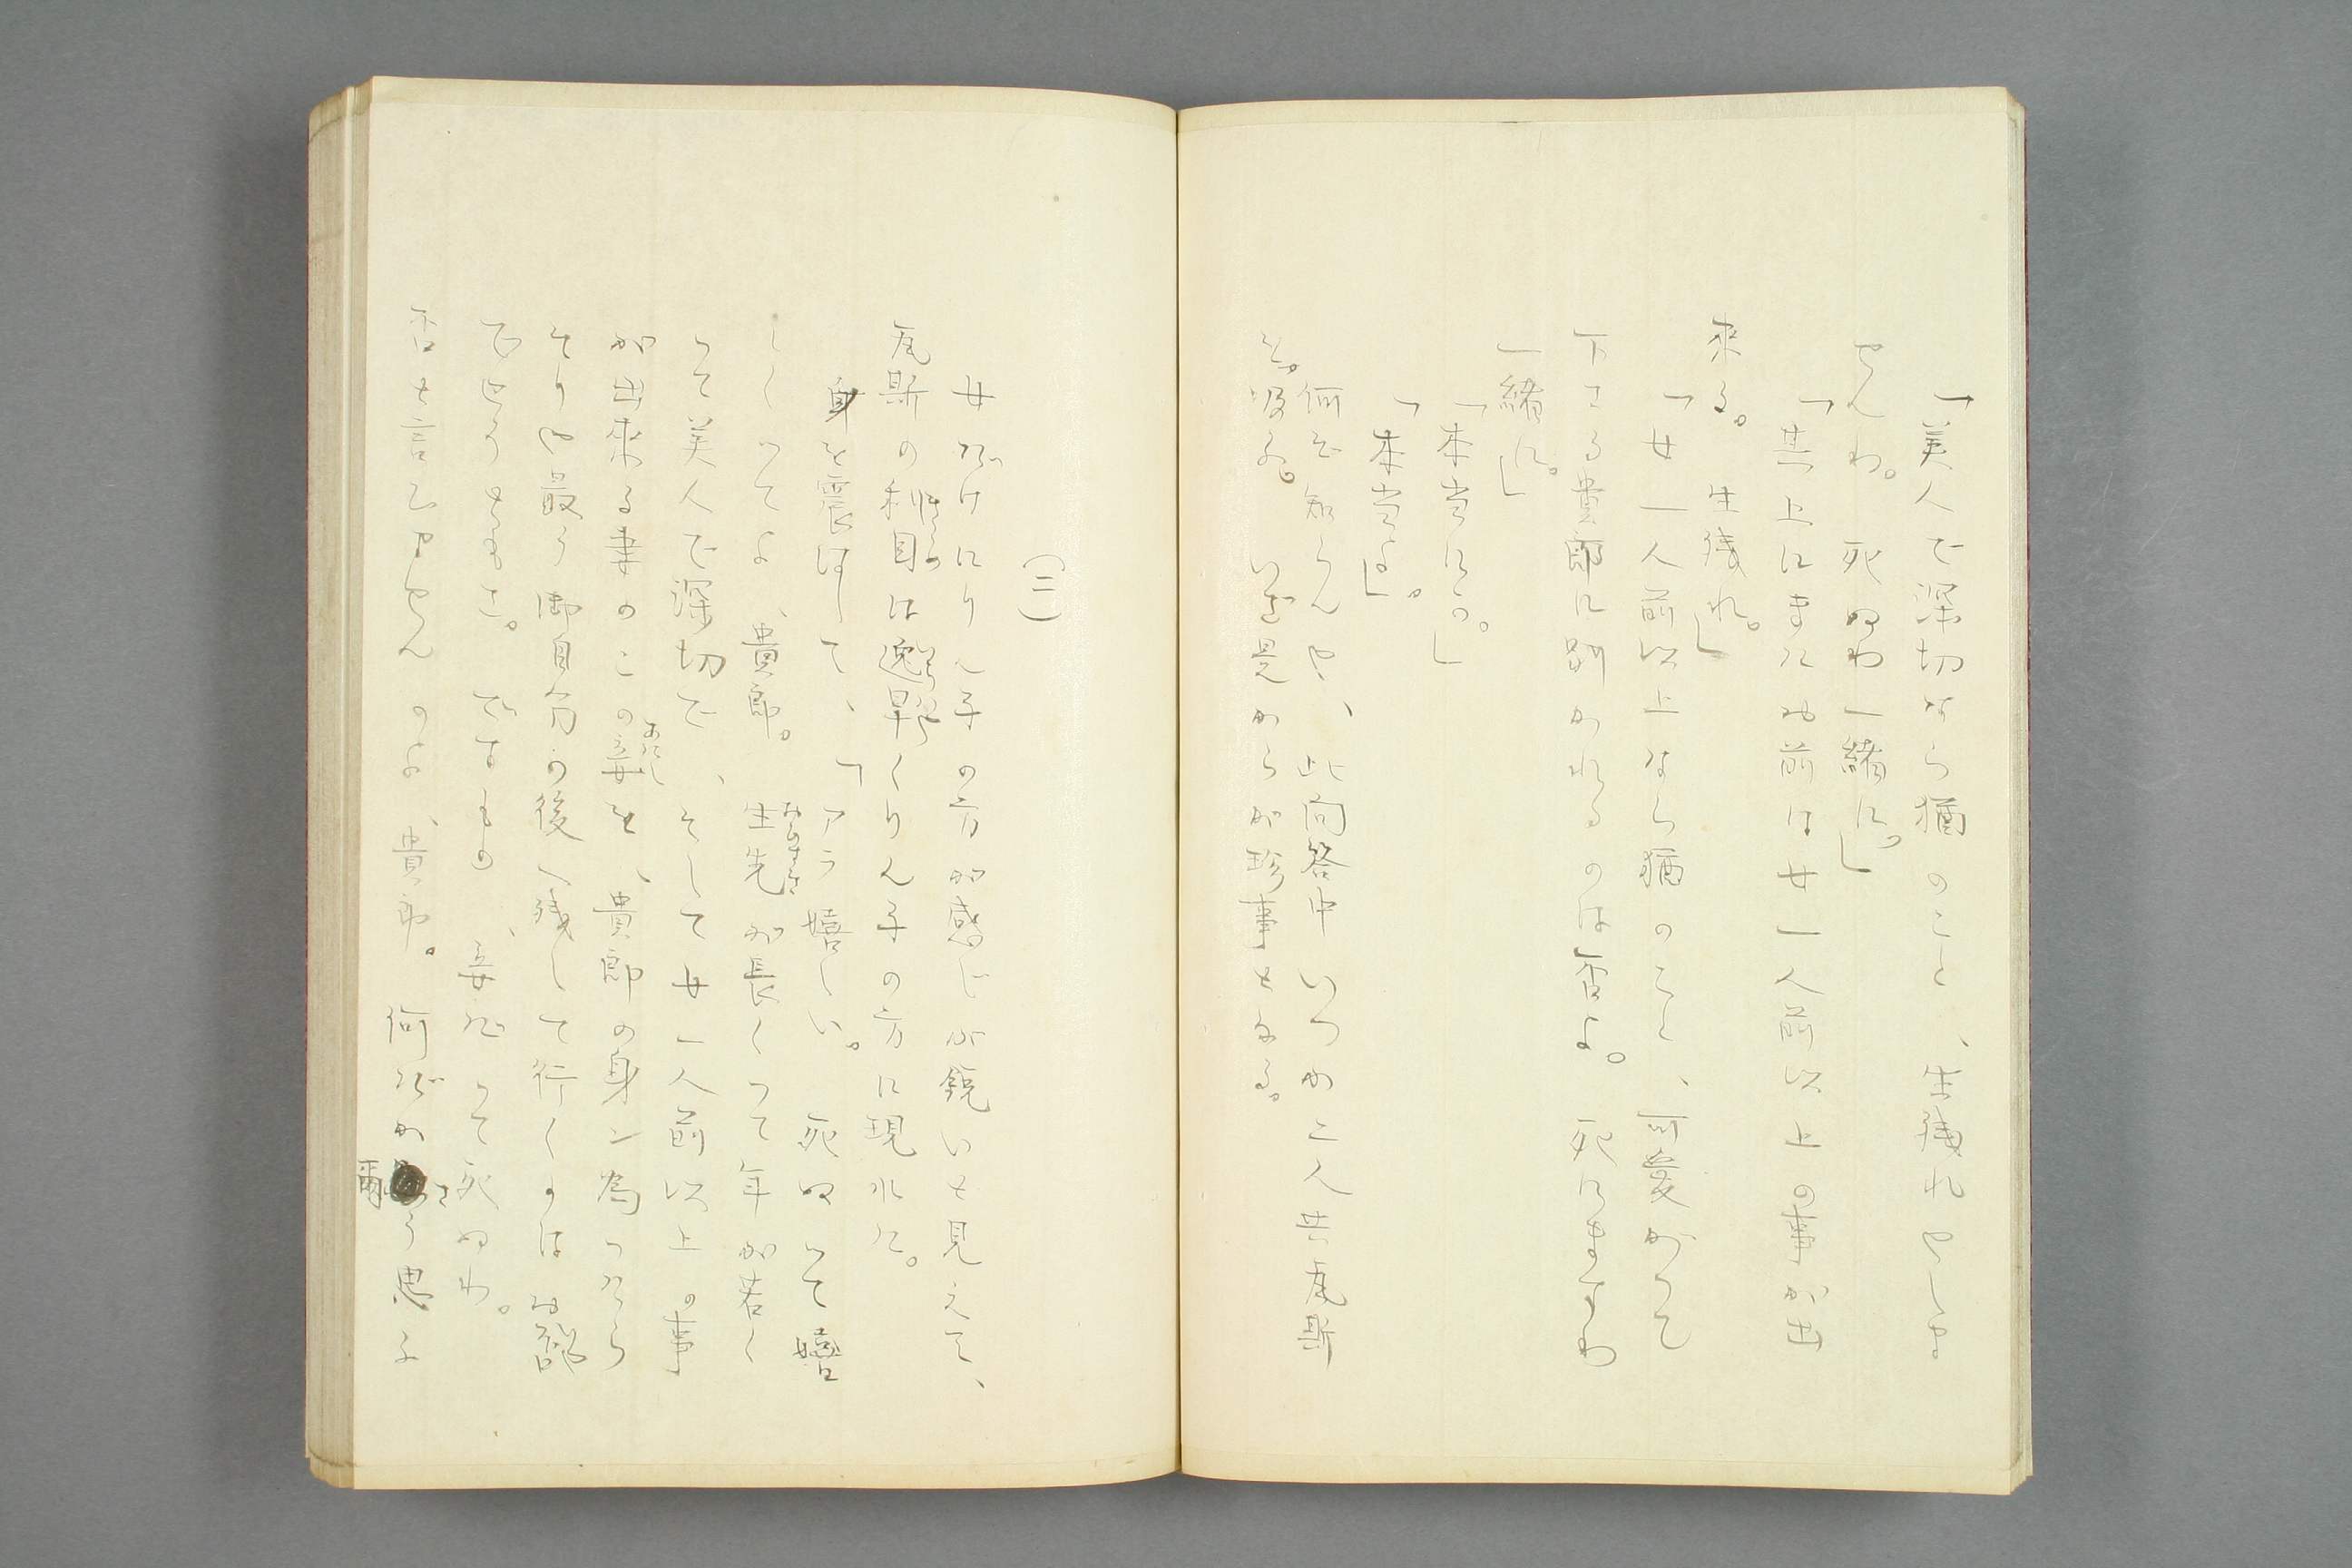 「美人で深切なら猶のこと、生残れやしま
せんわ。死ぬわ一緒に。」
「其上にまだお前は女一人前以上の事が出
来る。生残れ。」
「女一人前以上なら猶のこと、可愛がつて
下さる貴郎に別かれるのは否よ。死にますわ
一緒に。」
「本当にか。」
「本当よ。」
何ぞ知らんや、此問答中いつか二人共瓦斯
を吸ふ。いざ是からが珍事となる。
(二)
女だけにりん子の方が感じが鋭いと見えて、
瓦斯の利目は逸早くりん子の方に現れた。
身を震はして、「アラ嬉しい。死ぬつて嬉
しくつてよ、貴郎。生先が長くつて年が若く
つて美人で深切で、そして女一人前以上の事
が出来る妻のこの妾を、貴郎の身ン為つたら
そりや最う御自分の後へ残して行くのはお否
でせうともさ。ですもの、妾だつて死ぬわ。
否と言ひませんのよ、貴郎。何だか
う思ふ